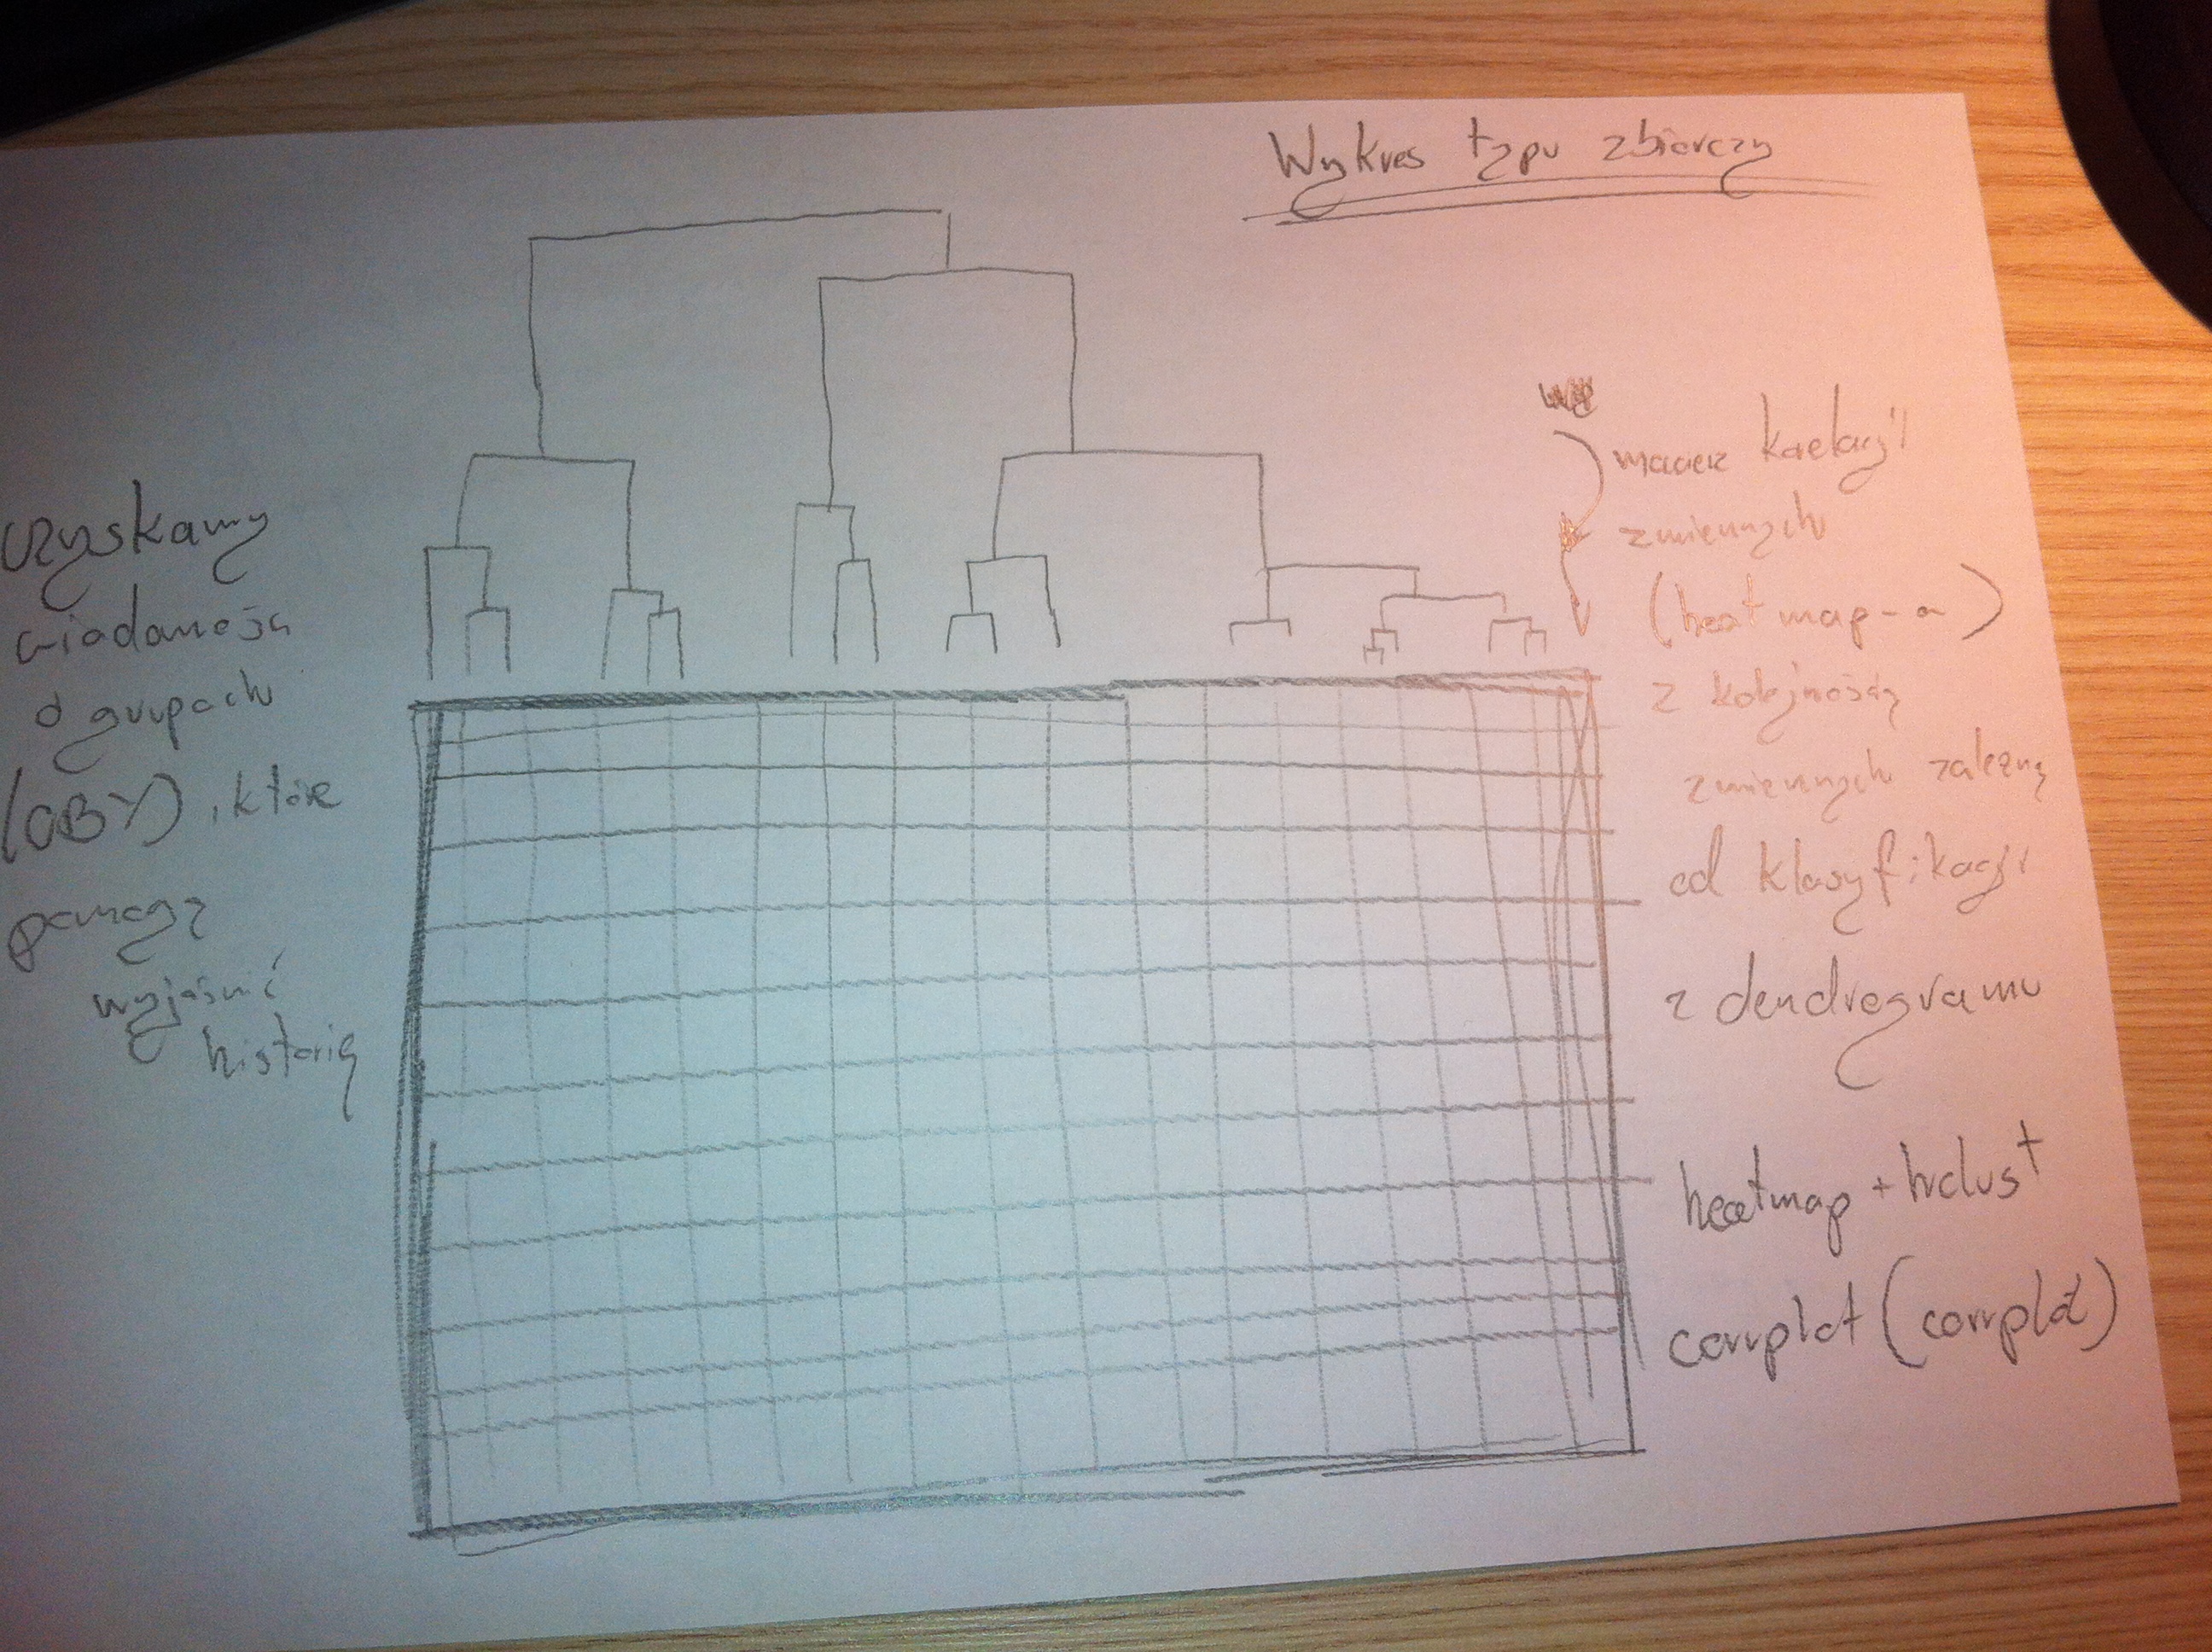 Wykres typu zbiorczy
uzyskamy
wiadomości
o grupach
(OBY), które
pomogą
wyjaśnić
historię
macierz korelacji
zmiennych
(heat map-a)
z kolejnością
zmiennych zależną
od klasyfikacji
z dendrogramu
heatmap + hclust
corrplot (corrplot)